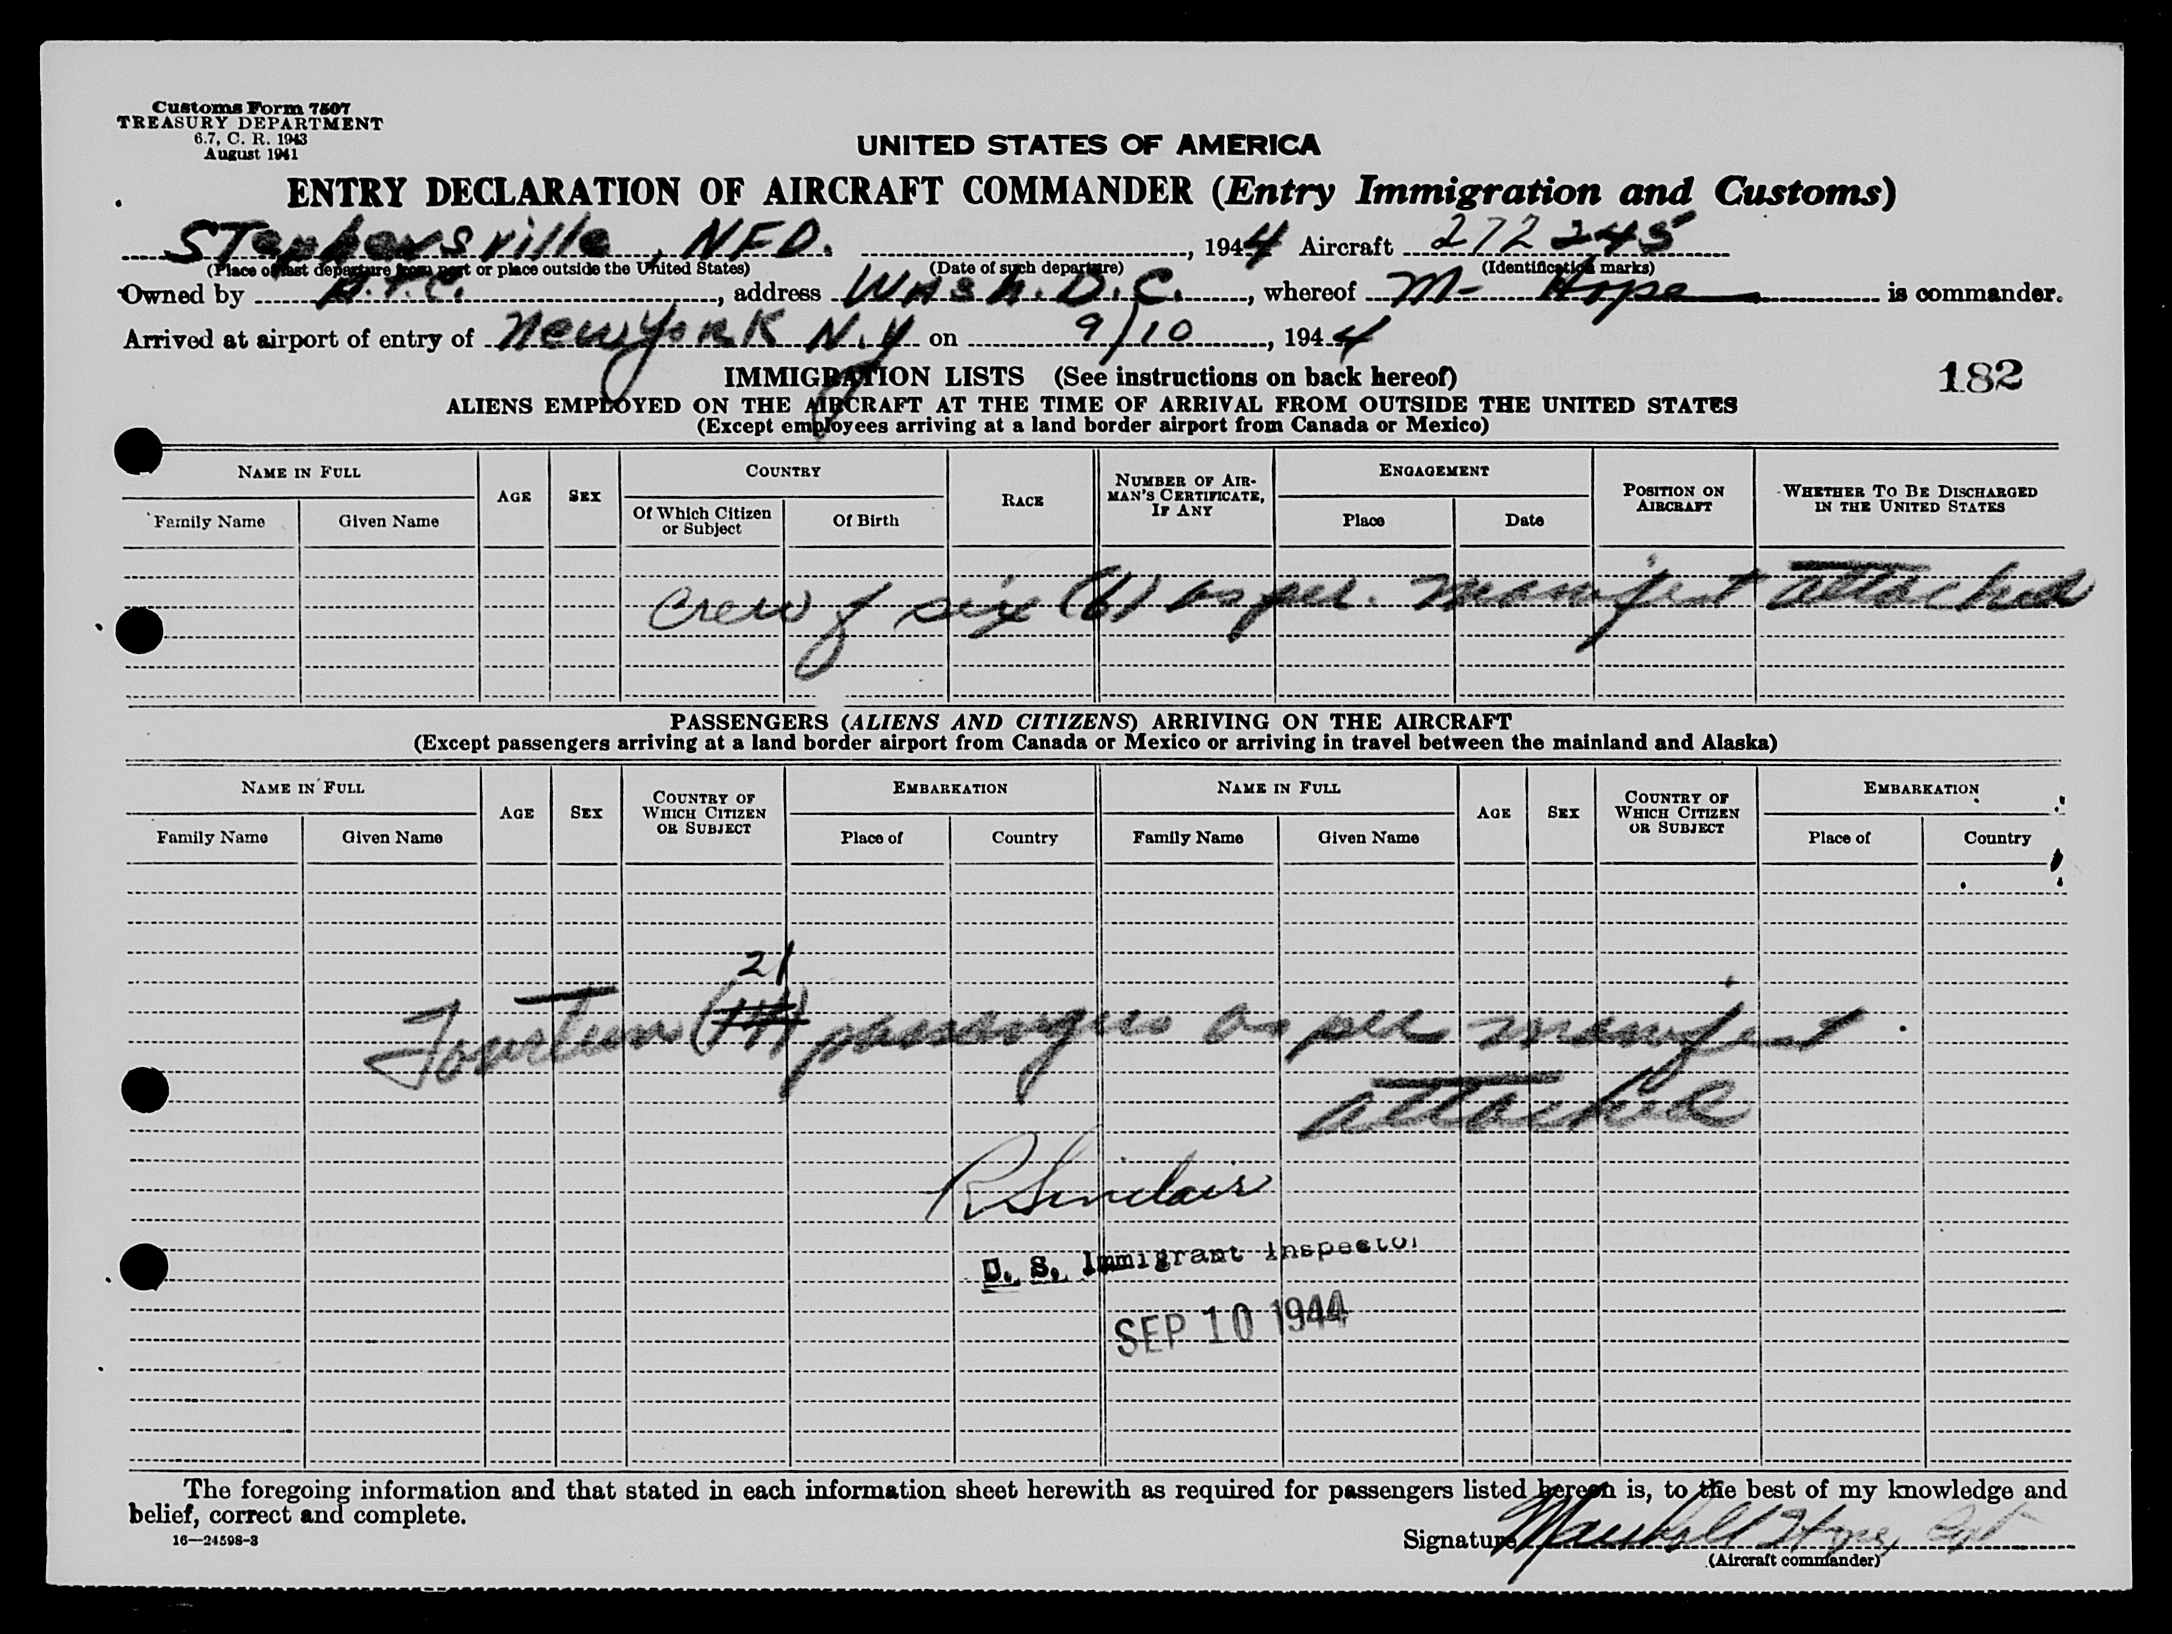 Customs Form 7507
TREASURY DEPARTMENT
6.7, C. R. 1943
August 1941
UNITED STATES OF AMERICA
ENTRY DECLARATION OF AIRCRAFT COMMANDER (Entry Immigration and Customs)
Stephensville, NFD. , 1944 Aircraft 272245
(Place of last departure from port or place outside the United States) (Date of such departure) (Identification marks)
Owned by A.T.C. , address Wash. D.C. , whereof M- Hope is commander.
Arrived at airport of entry of New York N.Y on 9/10 , 1944
182
IMMIGRATION LISTS (See instructions on back hereof)
ALIENS EMPLOYED ON THE AIRCRAFT AT THE TIME OF ARRIVAL FROM OUTSIDE THE UNITED STATES
(Except employees arriving at a land border airport from Canada or Mexico)
NAME IN FULL
Family Name Given Name
AGE
SEX
COUNTRY
Of Which Citizen or Subject
Of Birth
RACE
NUMBER OF AIRMAN'S CERTIFICATE, IF ANY
ENGAGEMENT
Place Date
POSITION ON AIRCRAFT
WHETHER TO BE DISCHARGED IN THE UNITED STATES
Crew of six (6) as per. manifest attached
PASSENGERS (ALIENS AND CITIZENS) ARRIVING ON THE AIRCRAFT
(Except passengers arriving at a land border airport from Canada or Mexico or arriving in travel between the mainland and Alaska)
NAME IN FULL
Family Name Given Name
AGE
SEX
COUNTRY OF WHICH CITIZEN OR SUBJECT
EMBARKATION
Place of Country
NAME IN FULL
Family Name Given Name
AGE
SEX
COUNTRY OF WHICH CITIZEN OR SUBJECT
EMBARKATION
Place of Country
21
Fourteen (14) passengers as per manifest
attached
R Sinclair
U. S. Immigrant Inspector
SEP 10 1944
The foregoing information and that stated in each information sheet herewith as required for passengers listed hereon is, to the best of my knowledge and
belief, correct and complete.
16—24598-3
Signature Marshall Hope, Capt
(Aircraft commander)